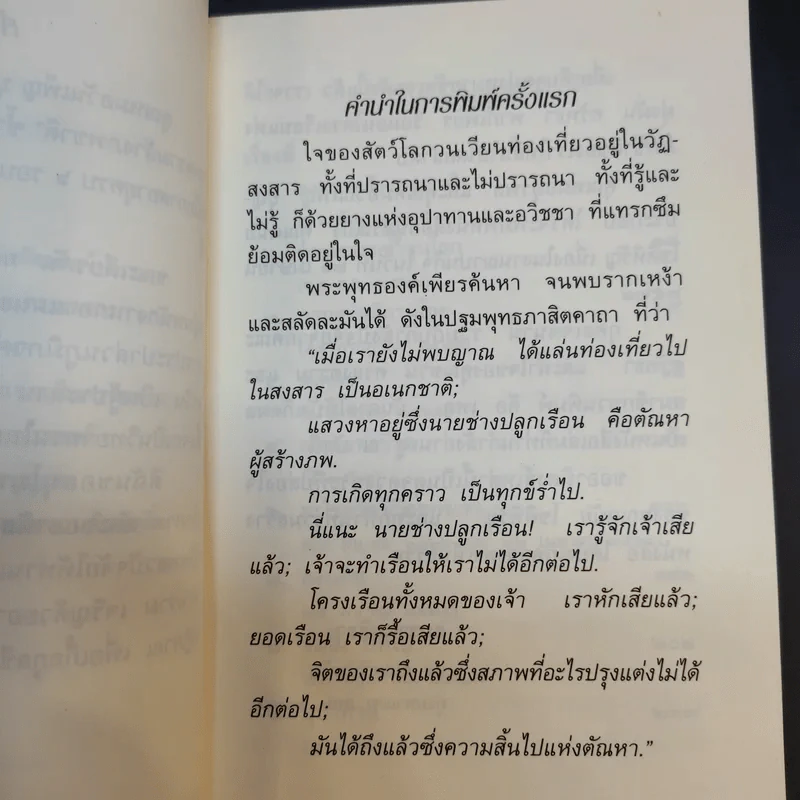 คำนำในการพิมพ์ครั้งแรก
ใจของสัตว์โลกวนเวียนท่องเที่ยวอยู่ในวัฏ-
สงสาร ทั้งที่ปรารถนาและไม่ปรารถนา ทั้งที่รู้และ
ไม่รู้ ก็ด้วยยางแห่งอุปาทานและอวิชชา ที่แทรกซึม
ย้อมติดอยู่ในใจ
พระพุทธองค์เพียรค้นหา จนพบรากเหง้า
และสลัดละมันได้ ดังในปฐมพุทธภาสิตคาถา ที่ว่า
“เมื่อเรายังไม่พบญาณ ได้แล่นท่องเที่ยวไป
ในสงสาร เป็นอเนกชาติ;
แสวงหาอยู่ซึ่งนายช่างปลูกเรือน คือตัณหา
ผู้สร้างภพ.
การเกิดทุกคราว เป็นทุกข์ร่ำไป.
นี่แนะ นายช่างปลูกเรือน! เรารู้จักเจ้าเสีย
แล้ว; เจ้าจะทำเรือนให้เราไม่ได้อีกต่อไป.
โครงเรือนทั้งหมดของเจ้า เราหักเสียแล้ว;
ยอดเรือน เราก็รื้อเสียแล้ว;
จิตของเราถึงแล้วซึ่งสภาพที่อะไรปรุงแต่งไม่ได้
อีกต่อไป;
มันได้ถึงแล้วซึ่งความสิ้นไปแห่งตัณหา.”